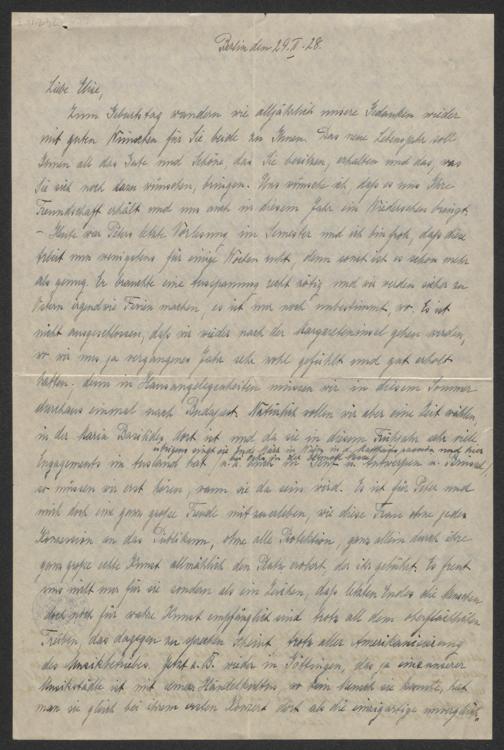 Berlin den 29. II. 28.
Liebe Elise,
Zum Geburtstag wandern wie alljährlich unsere Gedanken wieder
mit guten Wünschen für Sie beide zu Ihnen. Das neue Lebensjahr soll
Ihnen all das Gute und Schöne das Sie besitzen, erhalten und das, was
Sie sich noch dazu wünschen, bringen. Uns wünsche ich, daß es uns Ihre
Freundschaft erhält und uns auch in diesem Jahr ein Wiedersehen bringt.
- Heute war Peters letzte Vorlesung im Semester und ich bin froh, daß diese
Arbeit nun wenigstens für einige Wochen ruht, denn sonst ist es schon mehr
als genug. Er brauchte eine Ausspannung recht nötig und wir werden sicher zu
Ostern irgendwie Ferien machen, es ist nur noch unbestimmt, wo. Es ist
nicht ausgeschlossen, daß wir wieder nach der Margareteninsel gehen werden,
wo wir uns ja vergangenes Jahr sehr wohl gefühlt und gut erholt
hatten. denn in Hausangelegenheiten müssen wir in diesem Sommer
durchaus einmal nach Budapest. Natürlich wollen wir aber eine Zeit wählen
in der Maria Basilides dort ist und da sie in diesem Frühjahr sehr viele
übrigens singt sie Ende März in Köln in d. Matthäuspassion und hier
Engagements im Ausland hat, u.a. auch in Genf u. Antwerpen u. Brüssel,
so müssen wir erst hören, wann sie da sein wird. Es ist für Peter und
mich doch eine ganz große Freude mitzuerleben, wie diese Frau ohne jede
Konzession an das Publikum, ohne alle Protektion, ganz allein durch ihre
ganz große echte Kunst allmählich den Platz erobert der ihr gebührt. Es freut
uns nicht nur für sie sondern als ein Zeichen, daß letzten Endes die Menschen
doch noch für wahre Kunst empfänglich sind trotz all dem oberflächlichen
Treiben, das dagegen zu sprechen scheint trotz aller Amerikanisierung
des Musikbetriebes. Jetzt z.B. wieder in Göttingen, das ja eine unserer
Musikstädte ist mit seinen Händelfesten, wo kein Mensch sie kannte, hat
man sie gleich bei ihrem ersten Konzert dort als die einzigartige